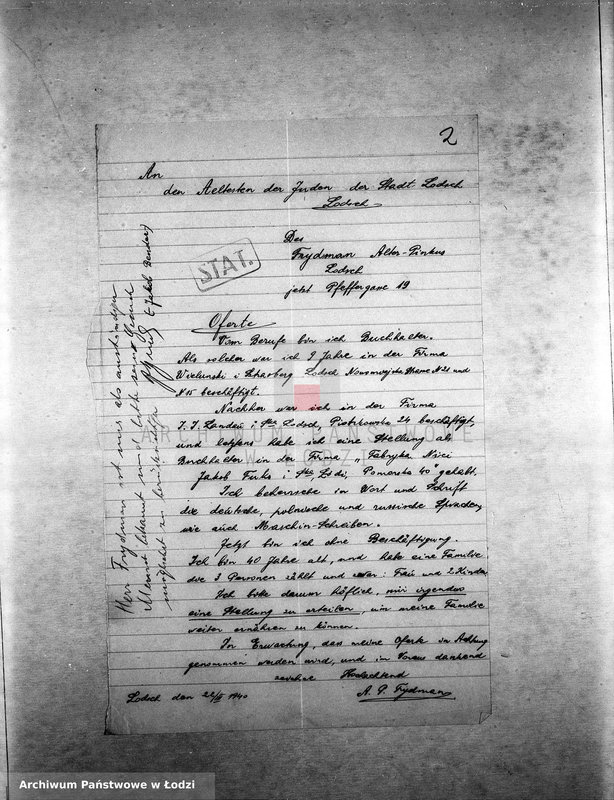 2
An
den Aeltesten der Juden der Stadt Lodsch
Lodsch
Des
Frydman Alter-Pinkus
Lodsch
jetzt Pfeffergasse 19
STAT.
Oferte
Vom Berufe bin ich Buchhalter.
Als solcher war ich 9 Jahre in der Firma
Wielunski i Lodsch N21 und
N15 beschäftigt.
Nachher war ich in der Firma
J. J. Landau i Ska Lodsch, Piotrkowska 24 beschäftigt,
und letztens habe ich eine Stellung als
Buchhalter in der Firma „Fabryka Nici
Jakob Fuks i Ska, Łódź, Pomorska 40" gehabt.
Ich beherrsche in Wort und Schrift
die deutsche, polnische und russische Sprachen,
wie auch Maschin-Schreiben.
Jetzt bin ich ohne Beschäftigung.
Ich bin 40 Jahre alt, und habe eine Familie
die 3 Personen zählt und zwar: Frau und 2 Kinder
Ich bitte darum höflich, mir irgendwo
eine Stellung zu erteilen, um meine Familie
weiter ernähren zu können.
In Erwartung, das meine Oferte in Achtung
genommen werden wird, und in Voraus dankend
zeichne Hochachtend
Lodsch den 22/II 1940
A. P. Frydman
Herr Frydman ist mir als anständiger
Mensch bekannt und bitte sein Gesuch
möglichst zu berücksichtigen
(Jakob Bender)
ARCHIWUM PAŃSTWOWE
W ŁODZI
Archiwum Państwowe w Łodzi